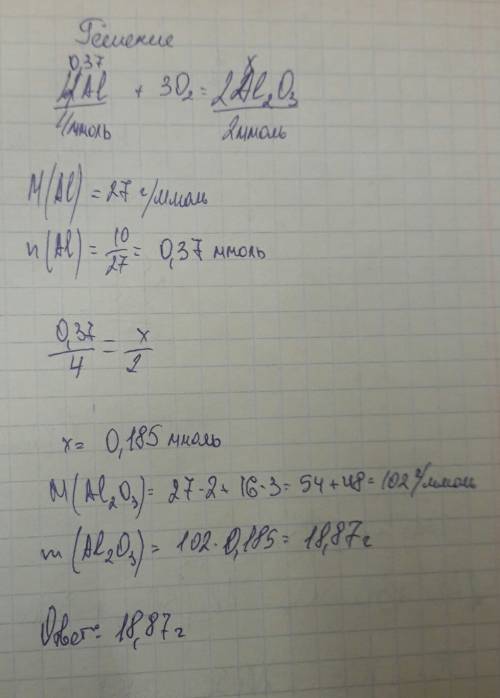 Решение
0,37 x
4Al + 3O₂ = 2Al₂O₃
4ммоль 2ммоль
M(Al) = 27 г/ммоль
n(Al) = 10/27 = 0,37 ммоль
0,37/4 = x/2
x = 0,185 ммоль
M(Al₂O₃) = 27·2 + 16·3 = 54 + 48 = 102 г/ммоль
m(Al₂O₃) = 102·0,185 = 18,87 г
Ответ: 18,87 г